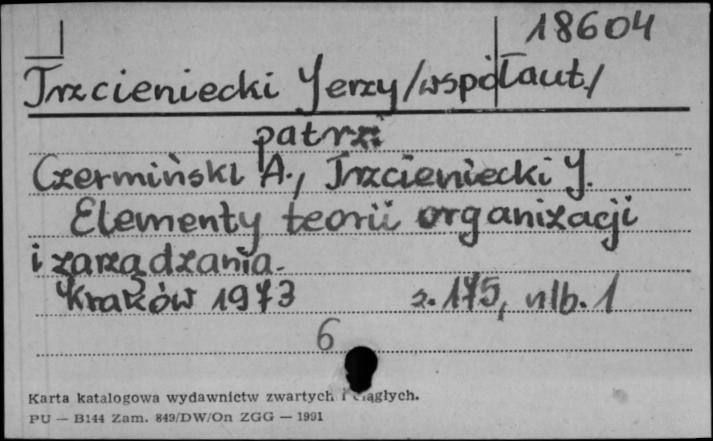 18604
Trzcieniecki Jerzy /współaut./
patrz:
Czermiński A., Trzcieniecki J.
Elementy teorii organizacji
i zarządzania.
Kraków 1973 s. 175, nlb. 1
6
Karta katalogowa wydawnictw zwartych i ciągłych.
PU — B144 Zam. 849/DW/On ZGG — 1991